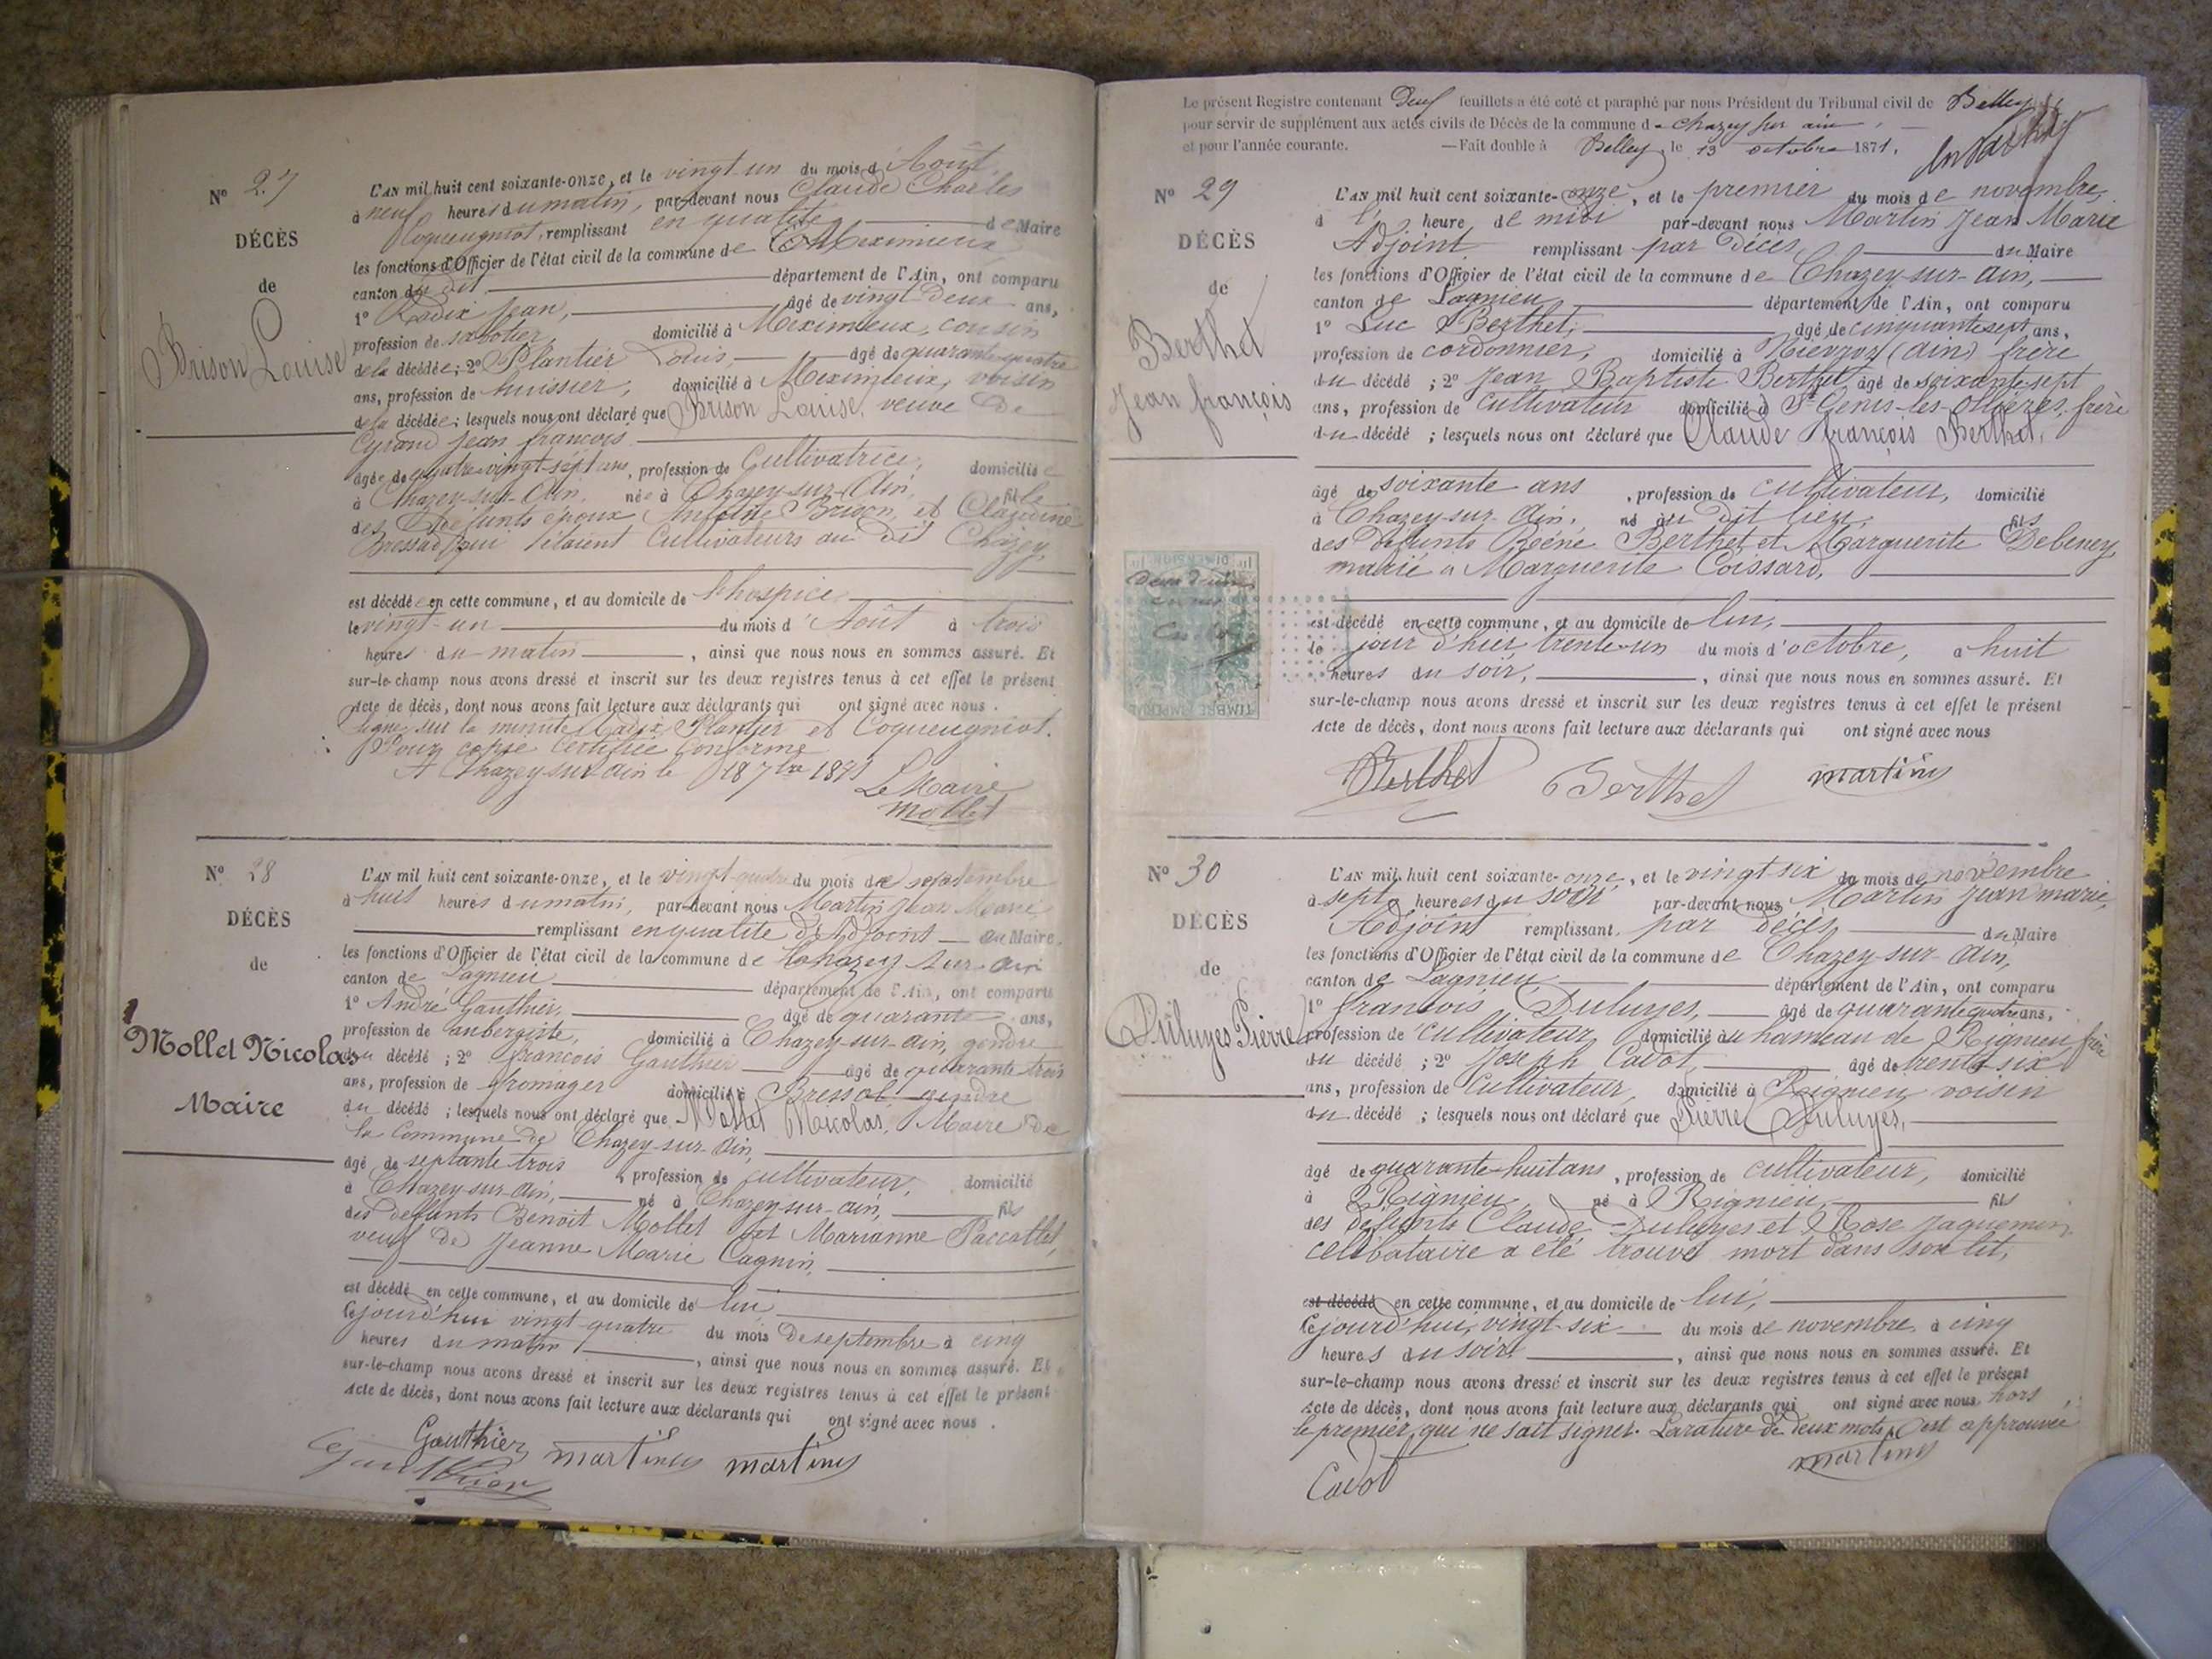 N° 27
DÉCÈS
de
Brison Louise
L'AN mil huit cent soixante-onze, et le vingt-un du mois d'Août
à neuf heures du matin, par-devant nous Claude Charles
Coqueugniot, remplissant en qualité de Maire
les fonctions d'Officier de l'état civil de la commune de Meximieux
canton du dit, département de l'Ain, ont comparu
1° Jean, âgé de vingt-deux ans,
profession de sabotier, domicilié à Meximieux, cousin
de la décédée; 2° Plantier Louis, âgé de quarante quatre
ans, profession de huissier, domicilié à Meximieux, voisin
de la décédée; lesquels nous ont déclaré que Brison Louise, veuve de
Cyrand Jean françois
âgée de quatre-vingt-sept ans, profession de Cultivatrice, domiciliée
à Chazey-sur-Ain, née à Chazey-sur-Ain, fille
des défunts époux Brison et Claudine
Bressad qui étaient Cultivateurs au dit Chazey,
est décédée en cette commune, et au domicile de l'hospice
le vingt-un du mois d'Août à trois
heures du matin, ainsi que nous nous en sommes assuré. Et
sur-le-champ nous avons dressé et inscrit sur les deux registres tenus à cet effet le présent
Acte de décès, dont nous avons fait lecture aux déclarants qui ont signé avec nous.
Signé sur la minute Plantier et Coqueugniot.
Pour copie certifiée conforme
A Chazey sur ain le 18 7bre 1871
Le Maire
Mollet
N° 28
DÉCÈS
de
Mollet Nicolas
Maire
L'AN mil huit cent soixante-onze, et le vingt-quatre du mois de septembre
à huit heures du matin, par-devant nous Martin Jean Marie
remplissant en qualité d'Adjoint du Maire
les fonctions d'Officier de l'état civil de la commune de Chazey sur ain
canton de Lagnieu département de l'Ain, ont comparu
1° André Gauthier, âgé de quarante ans,
profession de aubergiste, domicilié à Chazey-sur-ain, gendre
du décédé; 2° françois Gauthier âgé de quarante trois
ans, profession de fromager domicilié à Bressol gendre
du décédé; lesquels nous ont déclaré que Mollet Nicolas, Maire de
la Commune de Chazey-sur-Ain,
âgé de septante trois, profession de cultivateur, domicilié
à Chazey-sur-Ain, né à Chazey-sur-ain, fils
des défunts Benoit Mollet et Marianne Paccallet,
veuf de Jeanne Marie Cagnin,
est décédé en cette commune, et au domicile de lui
Cejourd'hui vingt-quatre du mois de septembre à cinq
heures du matin, ainsi que nous nous en sommes assuré. Et
sur-le-champ nous avons dressé et inscrit sur les deux registres tenus à cet effet le présent
Acte de décès, dont nous avons fait lecture aux déclarants qui ont signé avec nous.
Gauthier martin martin
Gauthier
Le présent Registre contenant Deux feuillets a été coté et paraphé par nous Président du Tribunal civil de Belley
pour servir de supplément aux actes civils de Décès de la commune de Chazey sur ain,
et pour l'année courante. —Fait double à Belley, le 13 octobre 1871.
N° 29
DÉCÈS
de
Berthet
Jean françois
L'AN mil huit cent soixante-onze, et le premier du mois de novembre,
à l' heure de midi par-devant nous Martin Jean Marie
Adjoint remplissant par Décès du Maire
les fonctions d'Officier de l'état civil de la commune de Chazey-sur-ain,
canton de Lagnieu département de l'Ain, ont comparu
1° Luc Berthet, âgé de cinquante sept ans,
profession de cordonnier, domicilié à Niévroz (ain) frère
du décédé; 2° Jean Baptiste Berthet, âgé de soixante-sept
ans, profession de cultivateur domicilié à St Genis-les-Ollières, frère
du décédé; lesquels nous ont déclaré que Claude françois Berthet,
âgé de soixante ans, profession de cultivateur, domicilié
à Chazey-sur-Ain, né au dit lieu, fils
des défunts Réné Berthet et Marguerite Debeney,
marié à Marguerite Coissard,
DIMENSION
TIMBRE IMPÉRIAL
est décédé en cette commune, et au domicile de lui,
le jour d'hier, trente-un du mois d'octobre, à huit
heures du soir, ainsi que nous nous en sommes assuré. Et
sur-le-champ nous avons dressé et inscrit sur les deux registres tenus à cet effet le présent
Acte de décès, dont nous avons fait lecture aux déclarants qui ont signé avec nous
Berthet Berthet martin
N° 30
DÉCÈS
de
Duluyes Pierre
L'AN mil huit cent soixante-onze, et le vingt six du mois de novembre
à sept heures du soir par-devant nous Martin Jean marie,
Adjoint remplissant par décès du Maire
les fonctions d'Officier de l'état civil de la commune de Chazey-sur-Ain,
canton de Lagnieu département de l'Ain, ont comparu
1° françois Duluyes, âgé de quarante quatre ans,
profession de cultivateur domicilié au hameau de Rignieu, frère
du décédé; 2° Joseph Cadot, âgé de trente six
ans, profession de cultivateur, domicilié à Rignieu voisin
du décédé; lesquels nous ont déclaré que Pierre Duluyes,
âgé de quarante-huit ans, profession de cultivateur, domicilié
à Rignieu, né à Rignieu, fils
des défunts Claude Duluyes et Rose Jaquemin,
célibataire a été trouvé mort dans son lit,
est décédé en cette commune, et au domicile de lui,
Cejourd'hui, vingt-six du mois de novembre à cinq
heures du soir, ainsi que nous nous en sommes assuré. Et
sur-le-champ nous avons dressé et inscrit sur les deux registres tenus à cet effet le présent
Acte de décès, dont nous avons fait lecture aux déclarants qui ont signé avec nous, hors
le premier, qui ne sait signer. La rature de deux mots est approuvée
Cadot martin